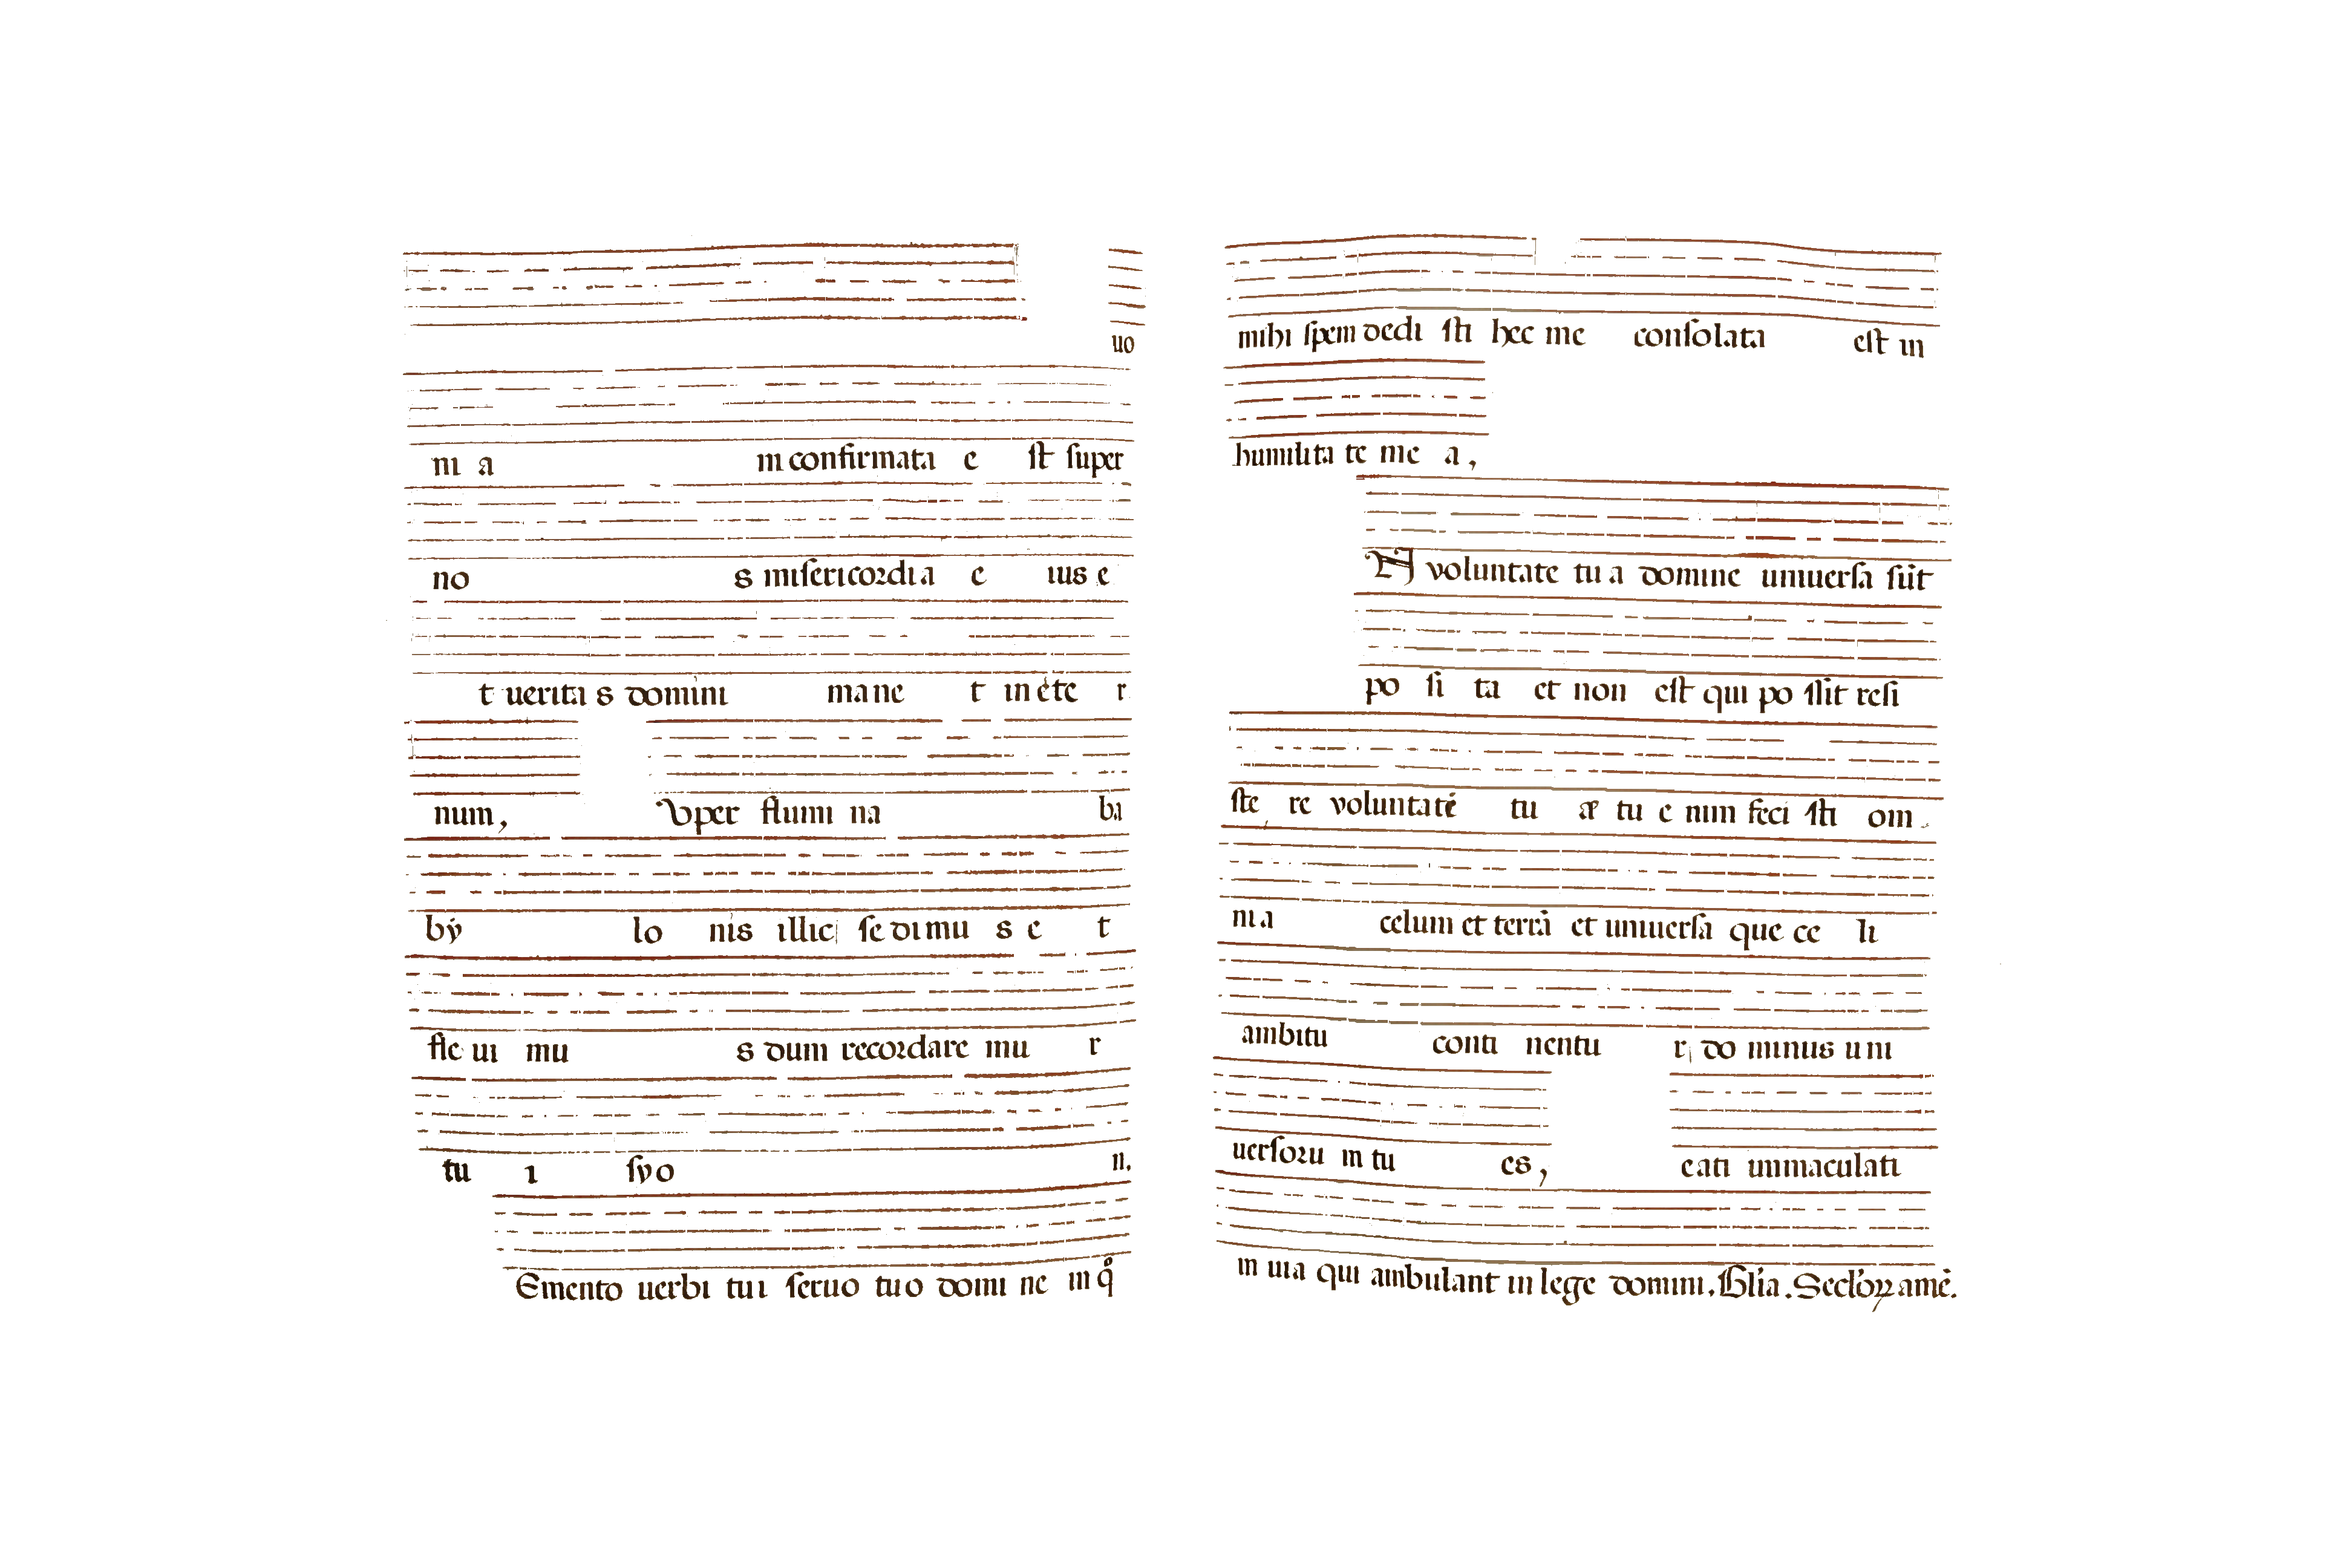 uo
ni a m confirmata e st super
no s misericordi a e ius e
t uerita s domini mane t in ete r
num, Vper flumi na ba
by lo nis illic se dimu s e t
fle ui mu s dum recordare mu r
tu i syo n.
Emento uerbi tui seruo tuo domi ne in qͦ
mihi spem dedi sti hec me consolata est in
humilita te me a,
N voluntate tu a domine uniuersa sūt
po si ta et non est qui po ssit resi
ste re voluntatē tu æ tu e nim feci sti om
ni a celum et terrā et uniuersa que ce li
ambitu conti nentu r, do minus u ni
uersoru m tu es,
eati immaculati
in uia qui ambulant in lege domini. Glīa. Seclōꝝ amē.